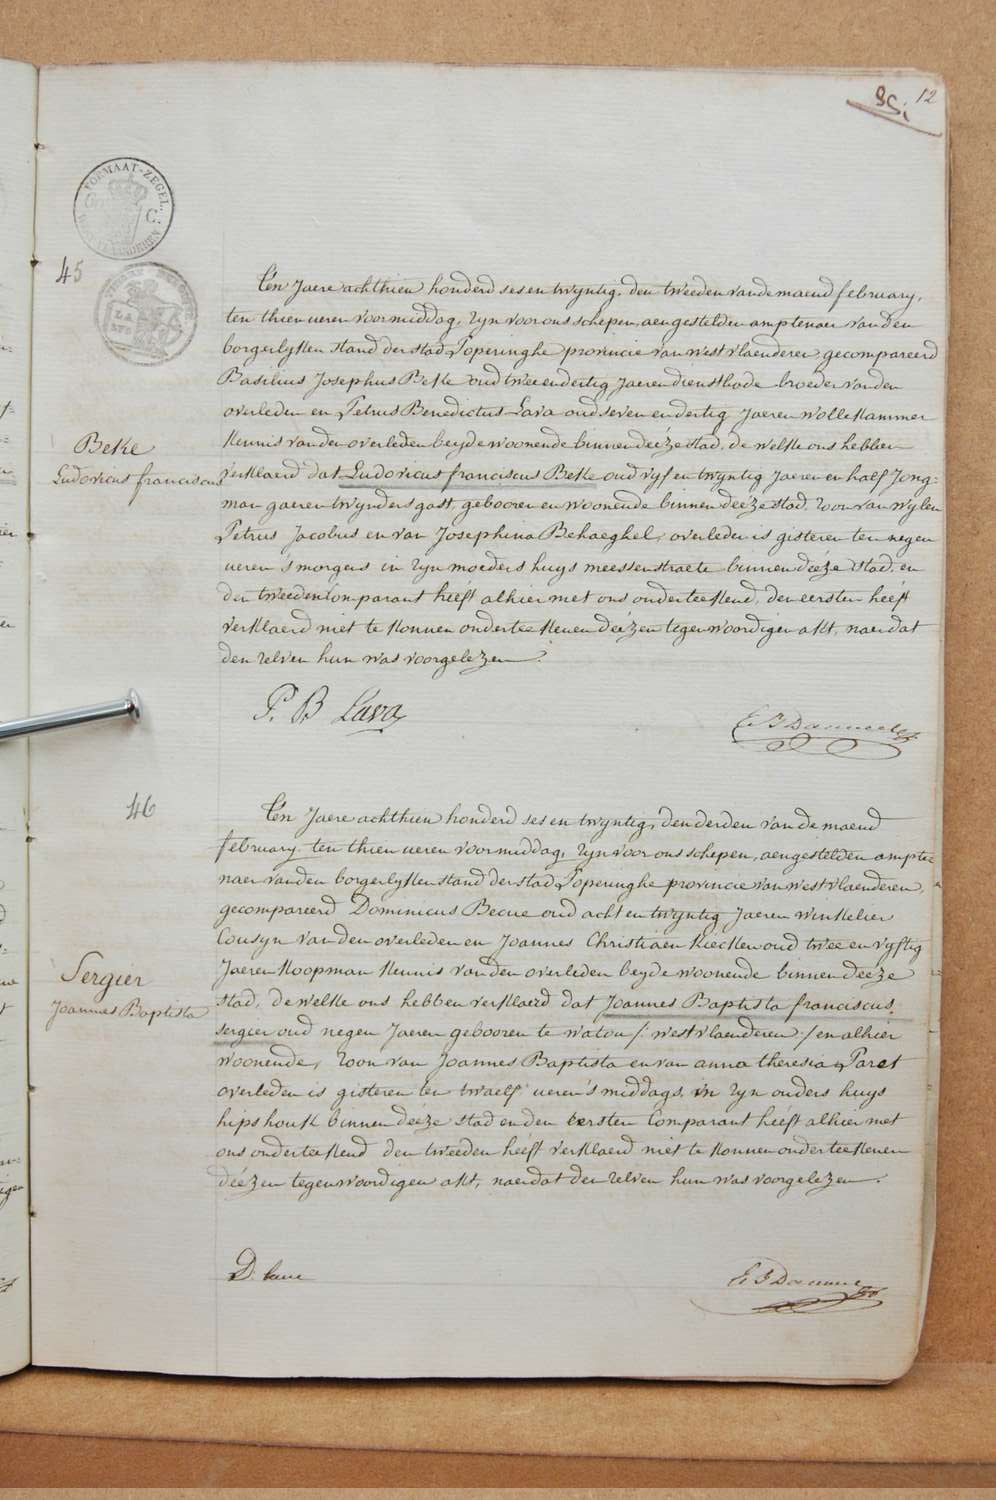 12
FORMAAT-ZEGEL.
45
Beke
Ludovicus franciscus
Ten Jaere achthien honderd ses en twyntig, den tweeden van de maend february,
ten thien ueren voormiddag, zyn voor ons schepen, aengestelden amptenaer van den
borgerlyken stand der stad Poperinghe provincie van westvlaenderen gecompareerd
Basilius Josephus Beke oud twee en dertig jaeren diensthode broeder van den
overleden en Petrus Benedictus Lava oud seven en dertig Jaeren wollekammer
kennis van den overleden beyde woonende binnen deéze stad, de welke ons hebben
verklaerd dat Ludovicus franciscus Beke oud vyf en twyntig Jaeren en half Jong=
man gaeren twynders gast, gebooren en woonende binnen deéze stad, zoon van wylen
Petrus Jacobus en van Josephina Behaeghel, overleden is gisteren ten negen
ueren s'morgens in zyn moeders huys meessenstraete binnen deéze stad, en
den tweeden Comparant héeft alhier met ons onderteekend, den eersten héeft
verklaerd niet te konnen onderteekenen deézen tegenwoordigen akt, naer dat
den zelven hun was voorgelezen.
P. B Lava
46
Sergier
Joannes Baptista
Ten Jaere achthien honderd ses en twyntig, den derden van de maend
february ten thien ueren voormiddag, zyn voor ons schepen, aengestelden ampte=
naer van den borgerlyken stand der stad Poperinghe provincie van westvlaenderen,
gecompareerd Dominicus Becue oud acht en twyntig Jaeren winkelier
Cousyn van den overleden en Joannes Christiaen Kiecken oud twee en vyftig
Jaeren koopman kennis van den overleden beyde woonende binnen deéze
stad, de welke ons hebben verklaerd dat Joannes Baptista franciscus
sergier oud negen Jaeren gebooren te watou /: westvlaenderen :/ en alhier
woonende, zoon van Joannes Baptista en van anna theresia Paret
overleden is gisteren ten twaelf ueren s'middags, in zyn ouders huys
hipshouk binnen deéze stad en den eersten Comparant héeft alhier met
ons onderteekend den tweeden héeft verklaerd niet te konnen onderteekenen
déézen tegenwoordigen akt, naer dat den zelven hun was voorgelezen.